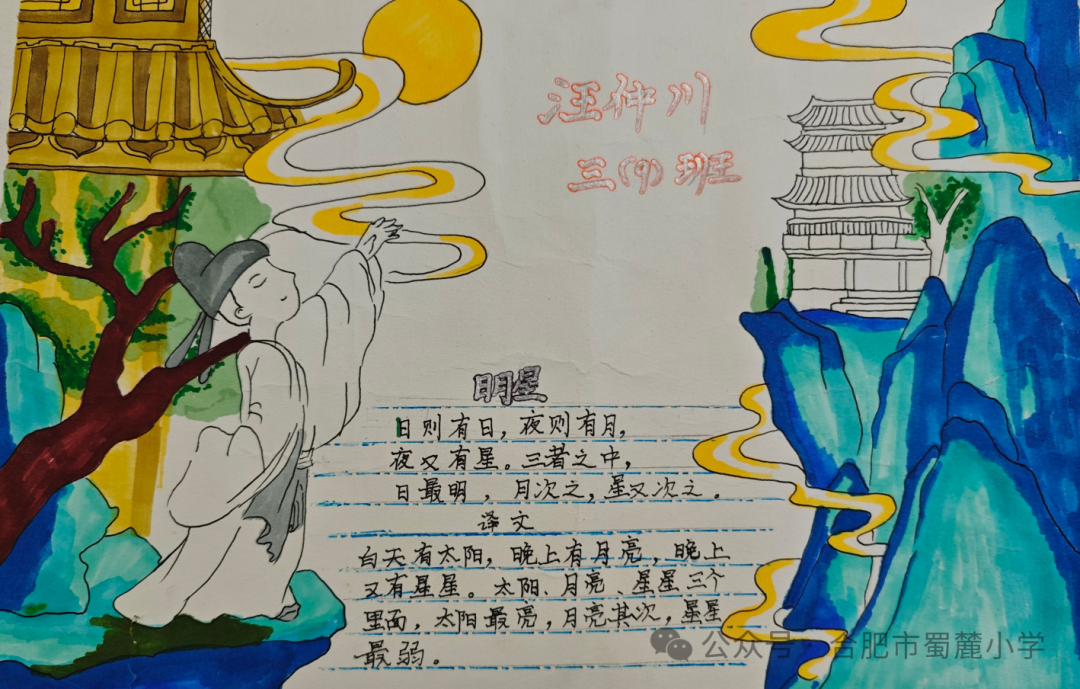 汪仲川
三(9)班
明星
日则有日，夜则有月，
夜又有星。三者之中，
日最明，月次之，星又次之。
译文
白天有太阳，晚上有月亮，晚上
又有星星。太阳、月亮、星星三个
里面，太阳最亮，月亮其次，星星
最弱。
公众号·合肥市蜀麓小学